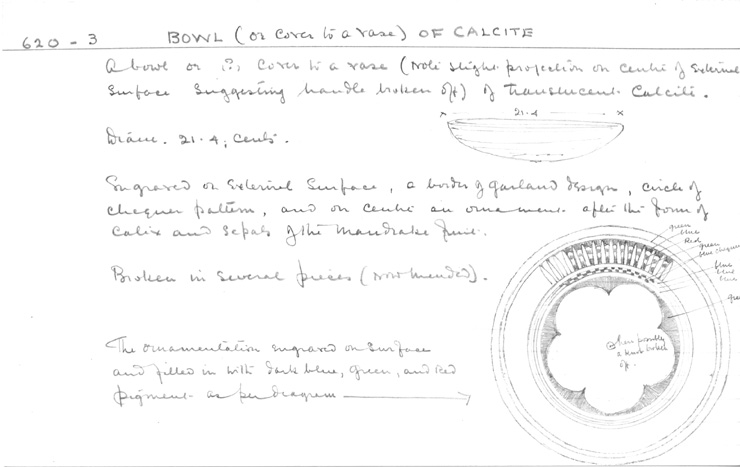 620 - 3
BOWL (or cover to a vase) OF CALCITE
A bowl or (?) cover to a vase (Note slight projection on centre of External
Surface suggesting handle broken off) of translucent Calcite.
x 21.4 x
Diam. 21.4; cents.
Engraved on External Surface, a border of garland design, circle of
chequer pattern, and on centre an ornament after the form of
Calix and Sepals of the Mandrake fruit.
green
blue
Red
green
blue chequer
blue
blue
Broken in several pieces (Now mended).
The ornamentation engraved on surface
and filled in with dark blue, green, and red
pigment as per diagram
here possibly
a knob broken
off.